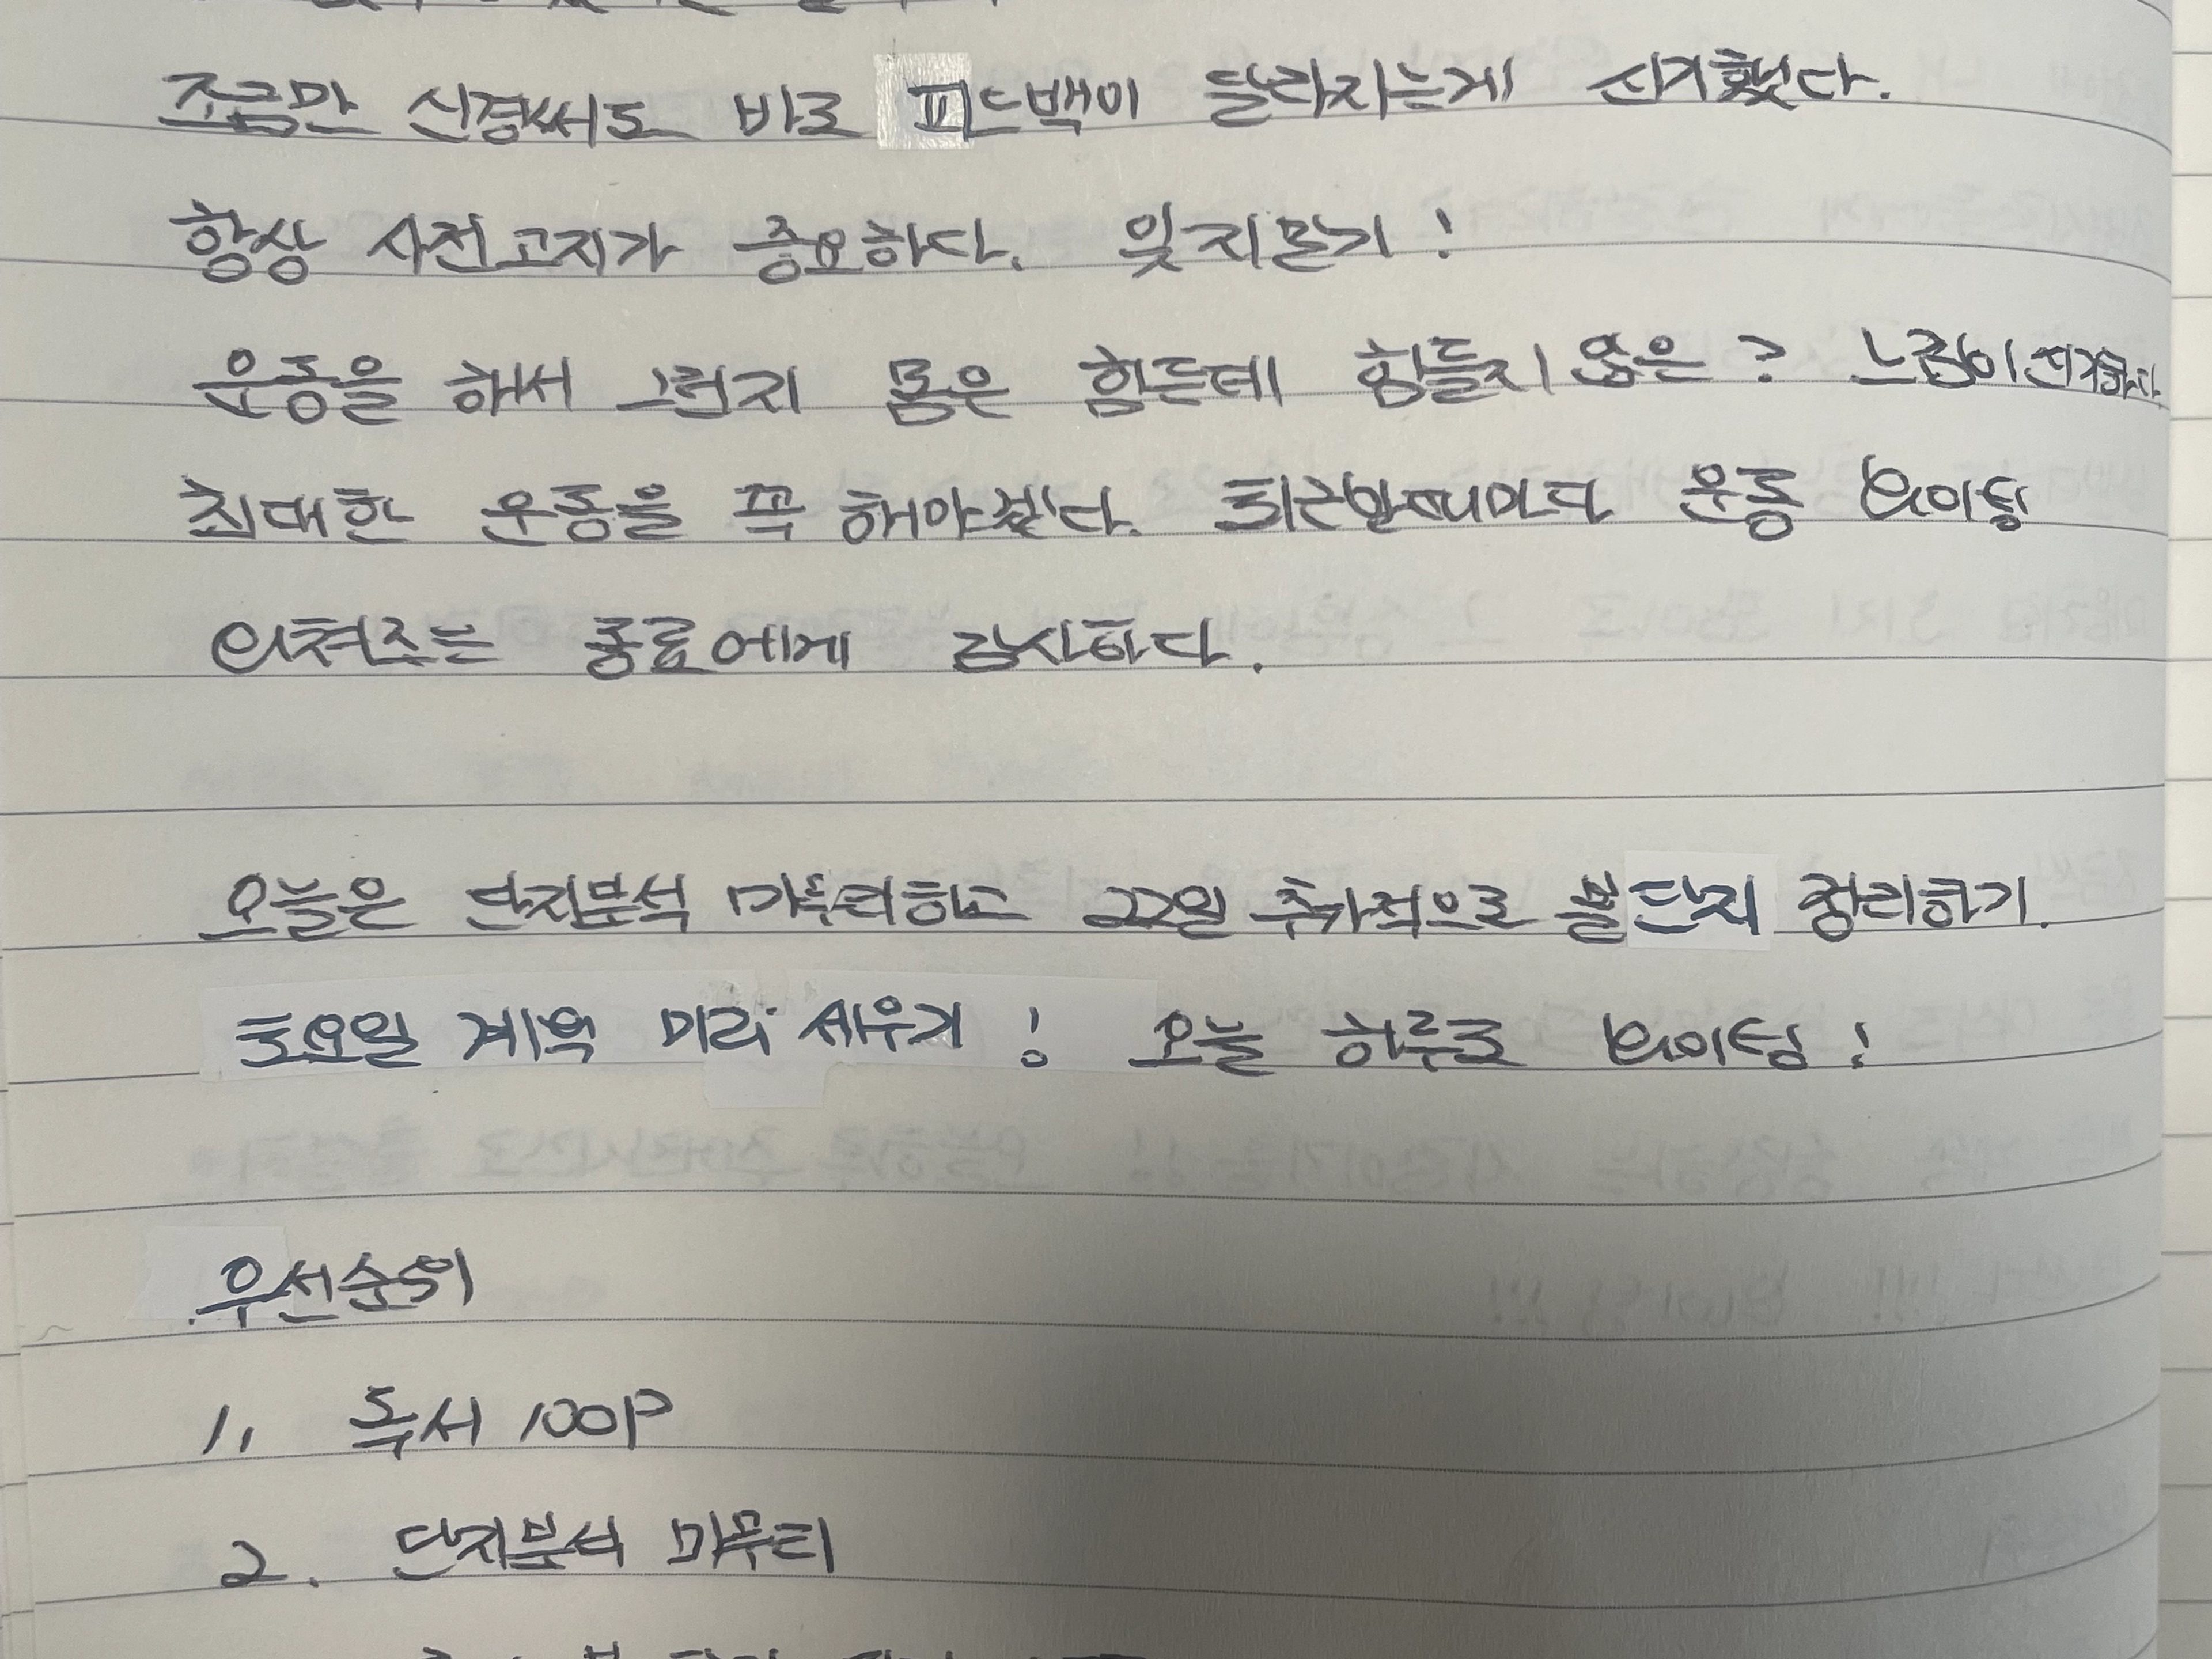 조금만 신경써도 바로 피드백이 달라지는게 신기했다.
항상 사전고지가 중요하다. 잊지말기!
운동을 해서 그런지 몸은 힘든데 힘들지 않은? 느낌이 신기하다
최대한 운동을 꼭 해야겠다. 퇴근할때마다 운동 화이팅
외쳐주는 동료에게 감사하다.
오늘은 단지분석 마무리하고 22일 추가적으로 볼단지 정리하기.
토요일 계획 미리 세우기! 오늘 하루도 화이팅!
우선순위
1. 독서 100P
2. 단지분석 마무리